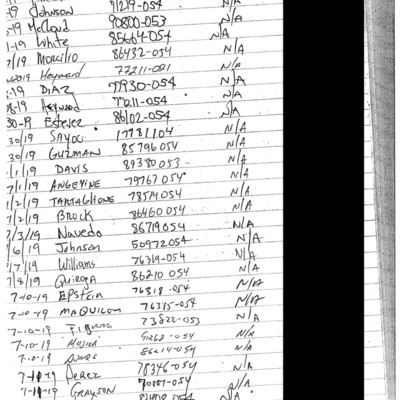 19 Johnson 71279-054 N/A
-19 McCloud 90800-053 N/A
-19 White 85664-054 N/A
/19 Morcilio 86432-054 N/A
2019 Heyward 77211-081 N/A
-19 DIAZ 77930-054 N/A
-19 Heyward 77211-054 N/A
30-19 Estevez 86102-054 N/A
30/19 SAYOC 17781104 N/A
30/19 GUZMAN 85796054 N/A
/1/19 DAVIS 89380053 N/A
7/1/19 ANGEVINE 79767054 N/A
/2/19 TARTAGLIONE 78514054 N/A
7/2/19 BROCK 86460054 N/A
7/3/19 Navedo 86719054 N/A
/6/19 Johnson 50972054 N/A
/7/19 Williams 76319-054 N/A
7/8/19 Quiroga 86210054 N/A
7-10-19 EPStein 76318-054 N/A
7-10-19 MAQUILON 76315-054 N/A
7-10-19 Figueroa 73822-053 N/A
7-10-19 91268-054 N/A
7-10-19 86614-054 N/A
7-11-19 Perez 78346-054 N/A
7-11-19 GRAYSON 70007-054 N/A
N/A